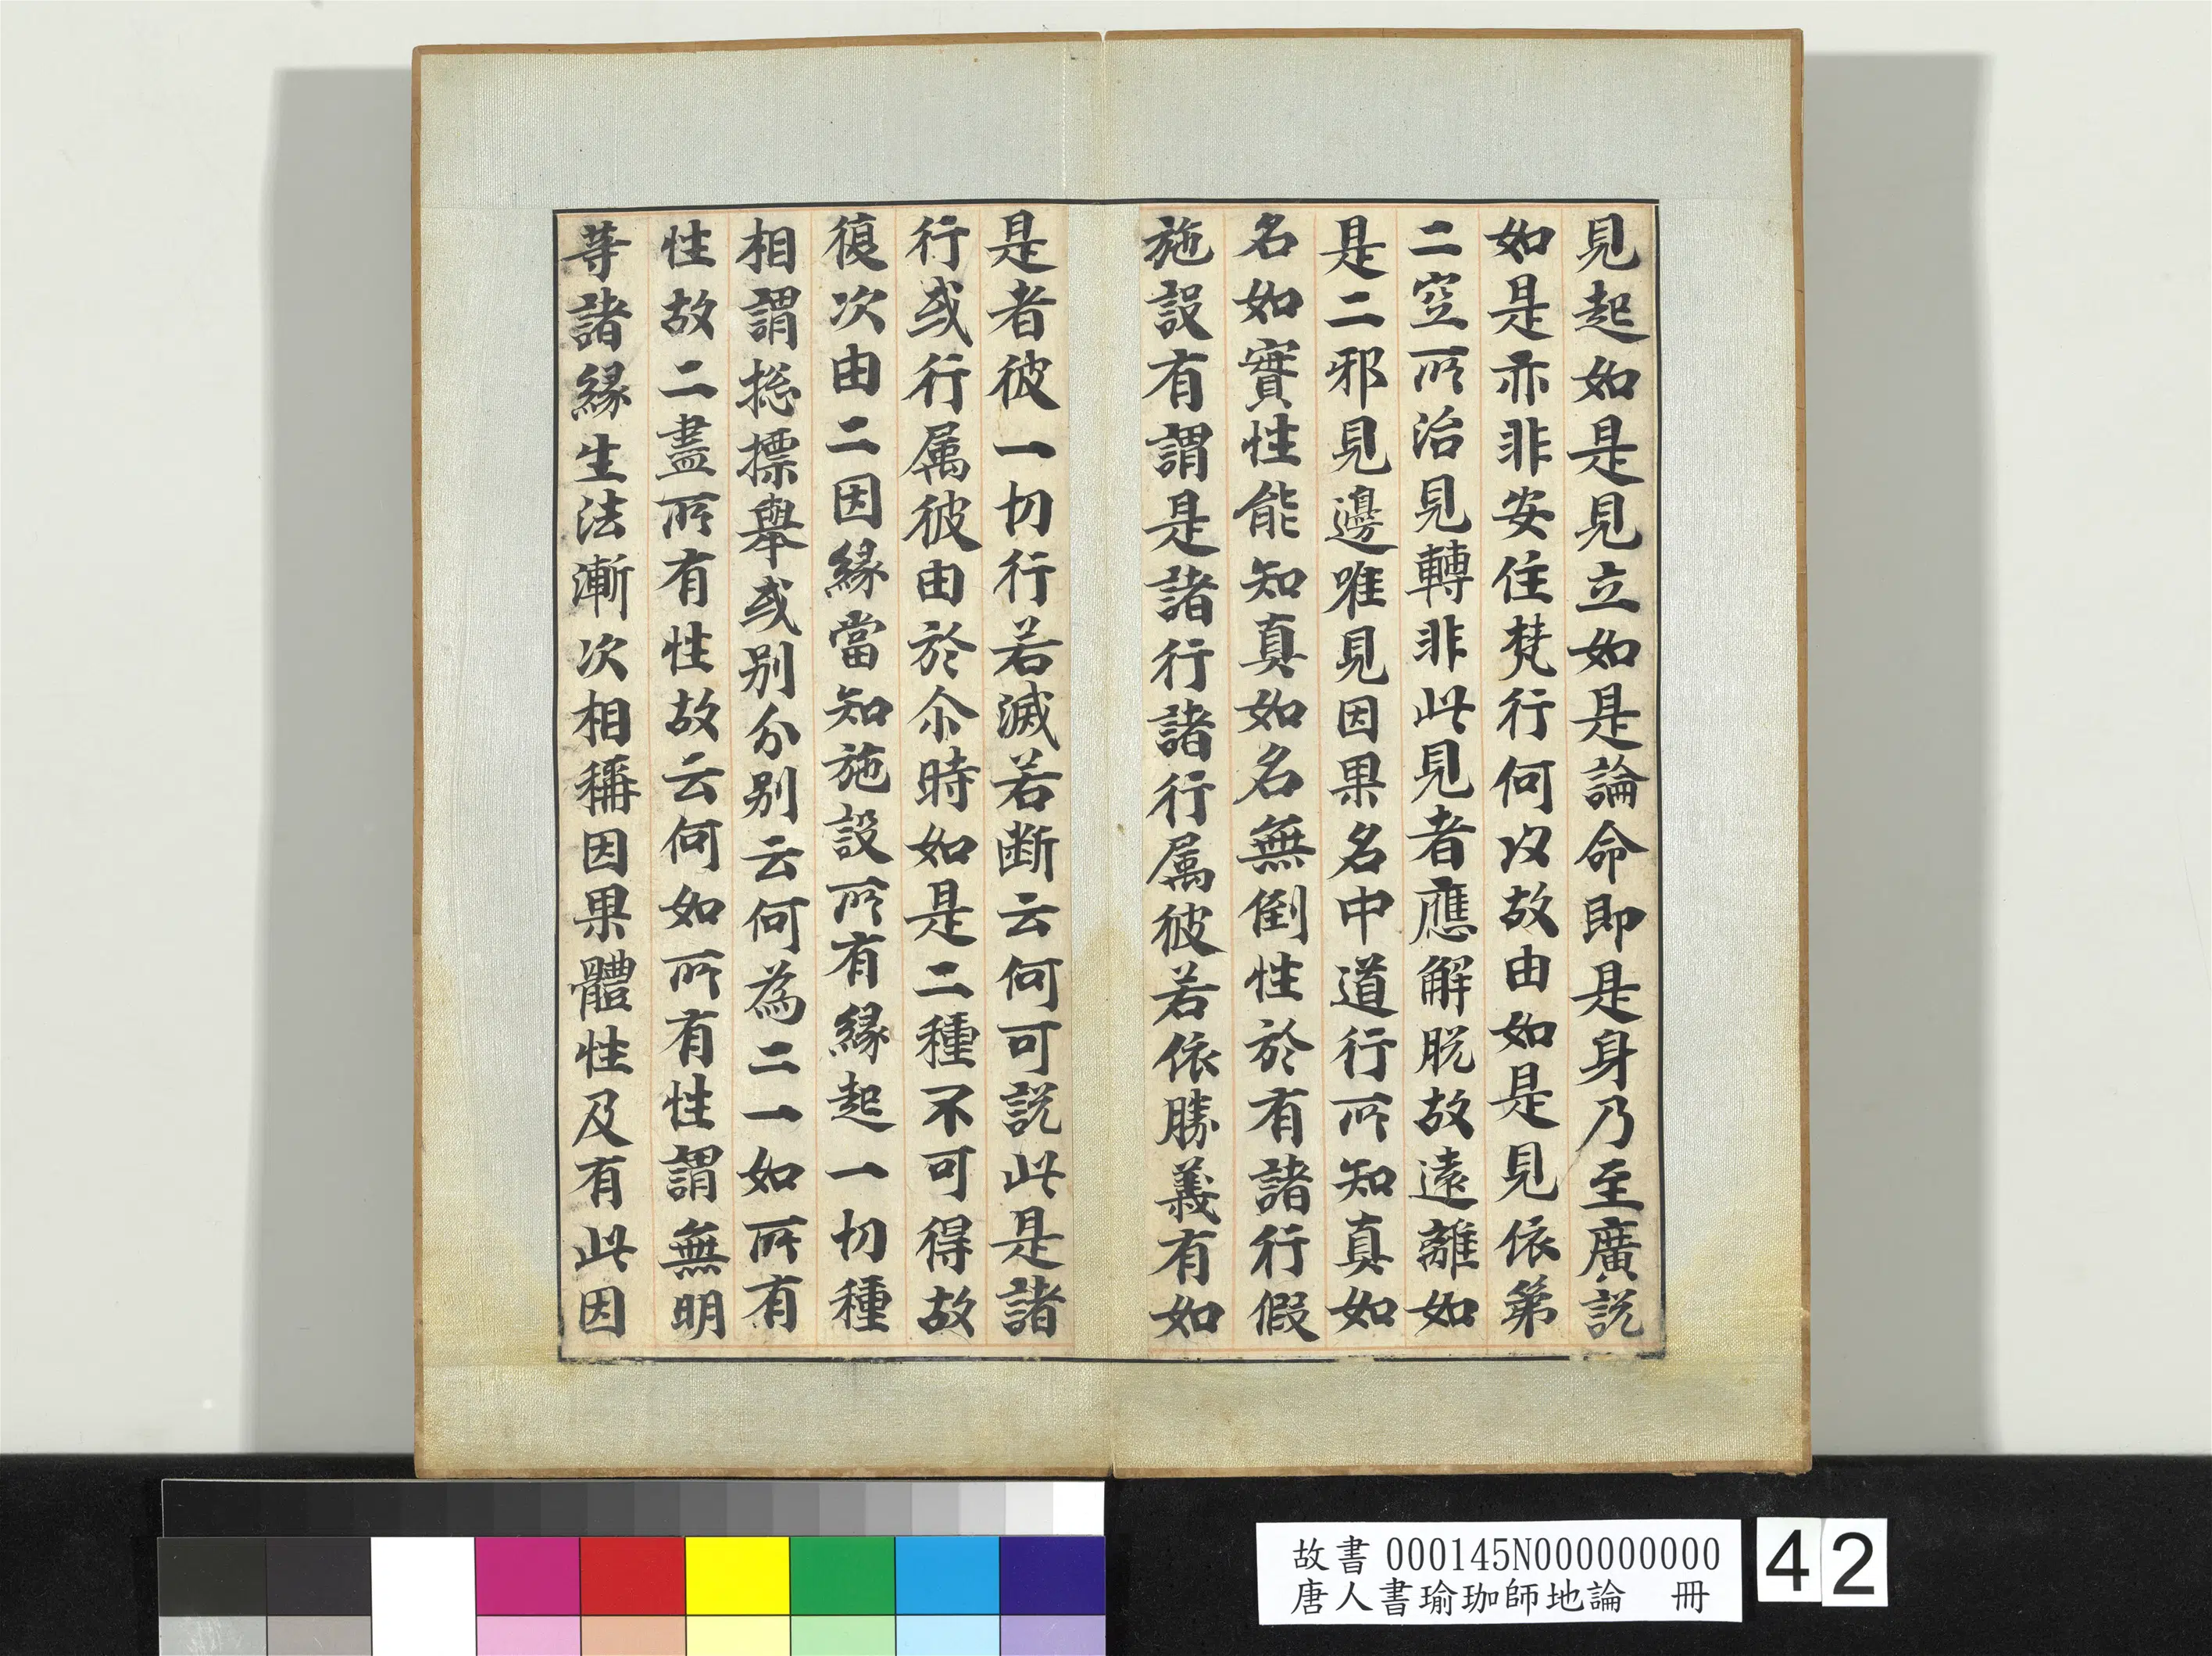 見起如是見立如是論命即是身乃至廣說
如是亦非安住梵行何以故由如是見依第
二空所治見轉非此見者應解脫故遠離如
是二邪見邊唯見因果名中道行所知真如
名如實性能知真如名無倒性於有諸行假
施設有謂是諸行諸行属彼若依勝義有如
是者彼一切行若滅若断云何可説此是諸
行或行属彼由於尒時如是二種不可得故
復次由二因緣當知施設所有緣起一切種
相謂捴摽舉或别分别云何為二一如所有
性故二盡所有性故云何如所有性謂無明
等諸緣生法漸次相稱因果體性及有此因
故書 000145N000000000
唐人書瑜珈師地論 冊
42